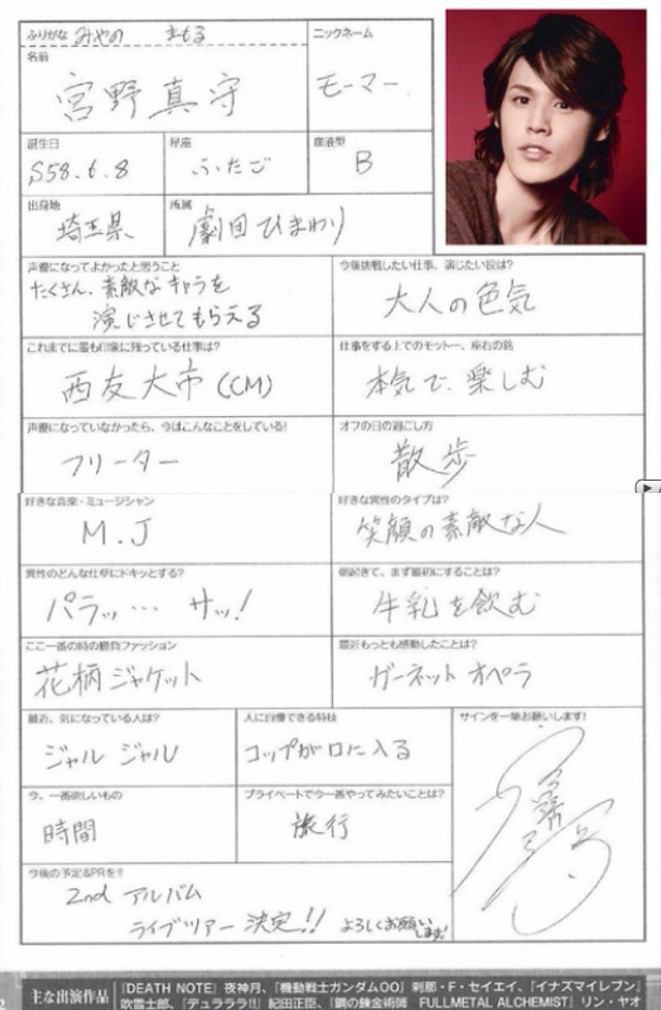 ふりがな みやの まもる
名前
宮野真守
ニックネーム
モーマー
誕生日
S58.6.8
星座
ふたご
血液型
B
出身地
埼玉県
所属
劇団ひまわり
声優になってよかったと思うこと
たくさん、素敵なキャラを
演じさせてもらえる
今後挑戦したい仕事、演じたい役は?
大人の色気
これまでに最も印象に残っている仕事は?
西友大市(CM)
仕事をする上でのモットー、座右の銘
本気で、楽しむ
声優になっていなかったら、今はこんなことをしている!
フリーター
オフの日の過ごし方
散歩
好きな音楽・ミュージシャン
M.J
好きな異性のタイプは?
笑顔の素敵な人
異性のどんな仕草にドキッとする?
パラッ… サッ!
朝起きて、まず最初にすることは?
牛乳を飲む
ここ一番の時の勝負ファッション
花柄ジャケット
最近もっとも感動したことは?
ガーネット オペラ
最近、気になっている人は?
ジャル ジャル
人に自慢できる特技
コップが口に入る
サインを一筆お願いします!
今、一番欲しいもの
時間
プライベートで今一番やってみたいことは?
旅行
今後の予定&PRを!!
2nd アルバム
ライブツアー 決定!! よろしくお願い
します!
2
主な出演作品
『DEATH NOTE』夜神月、『機動戦士ガンダムOO』刹那・F・セイエイ、『イナズマイレブン』
吹雪士郎、『デュラララ!!』紀田正臣、『鋼の錬金術師 FULLMETAL ALCHEMIST』リン・ヤオ